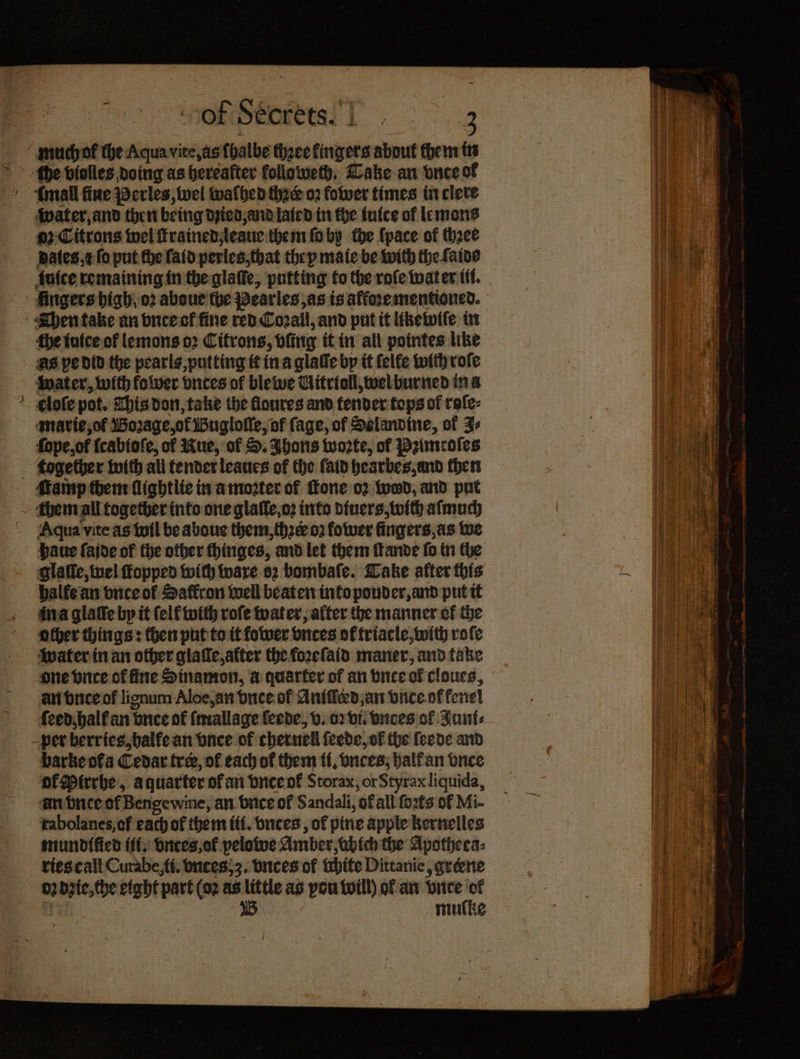 of Secrets. 3
much of the Aqua vite, as shalbe three fingers about them in
the violles, doing as hereafter followeth. Take an vnce of
small fine Perles, wel washed thrée or fower times in clere
water, and then being dried, and laied in the iuice of lemons
or Citrons wel strained, leaue them so by the space of three
daies, & so put the said perles, that they maie be with the saide
iuice remaining in the glasse, putting to the rose water iii.
fingers high, or aboue the Pearles, as is afforementioned.
Then take an vnce of fine red Corall, and put it likewise in
the iuice of lemons or Citrons, vsing it in all pointes like
as ye did the pearls, putting it in a glasse by it selfe with rose
water, with fower vnces of blewe Vitrioll, wel burned in a
close pot. This don, take the floures and tender tops of rose-
marie, of Borage, of Buglosse, of sage, of Selandine, of I-
sope, of scabiose, of Rue, of S. Ihons worte, of Primroses
together with all tender leaues of the said hearbes, and then
stamp them slightlie in a morter of stone or wood, and put
them all together into one glasse, or into diuers, with asmuch
Aqua vite as wil be aboue them, thrée or fower fingers, as we
haue saide of the other thinges, and let them stande so in the
glasse, wel stopped with ware or bombase. Take after this
halfe an vnce of Saffron well beaten into pouder, and put it
in a glasse by it self with rose water, after the manner of the
other things: then put to it fower vnces of triacle, with rose
water in an other glasse, after the foresaid maner, and take
one vnce of fine Sinamon, a quarter of an vnce of cloues,
an vnce of lignum Aloe, an vnce of Anisséed, an vnce of fenel
seed, half an vnce of smallage seede, v. or vi. vnces of Juni-
per berries, halfe an vnce of cheruell seede, of the seede and
barke of a Cedar trée, of each of them ii, vnces, half an vnce
of Mirrhe, a quarter of an vnce of Storax, or Styrax liquida,
an vnce of Bengewine, an vnce of Sandali, of all sorts of Mi-
rabolanes, of each of them iii. vnces, of pine apple kernelles
mundified iii. vnces, of yelowe Amber, which the Apotheca-
ries call Curabe, ii. vnces, 3. vnces of white Dittanie, gréene
or drie, the eight part (or as little as you will) of an vnce of
B muske